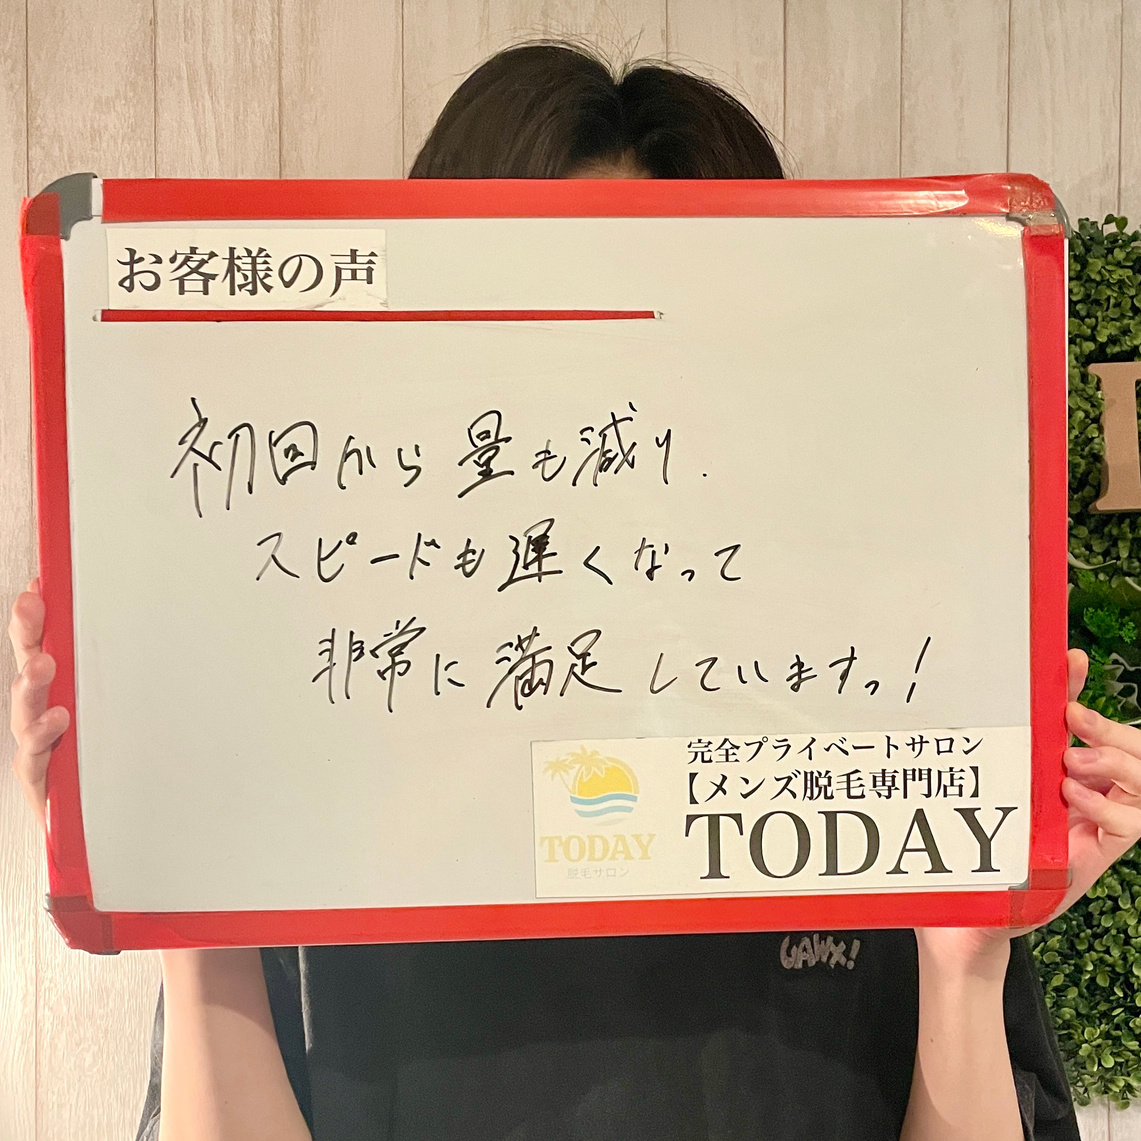 お客様の声
初回から量も減り.
スピードも遅くなって
非常に満足していますっ!
完全プライベートサロン
【メンズ脱毛専門店】
TODAY
TODAY
脱毛サロン